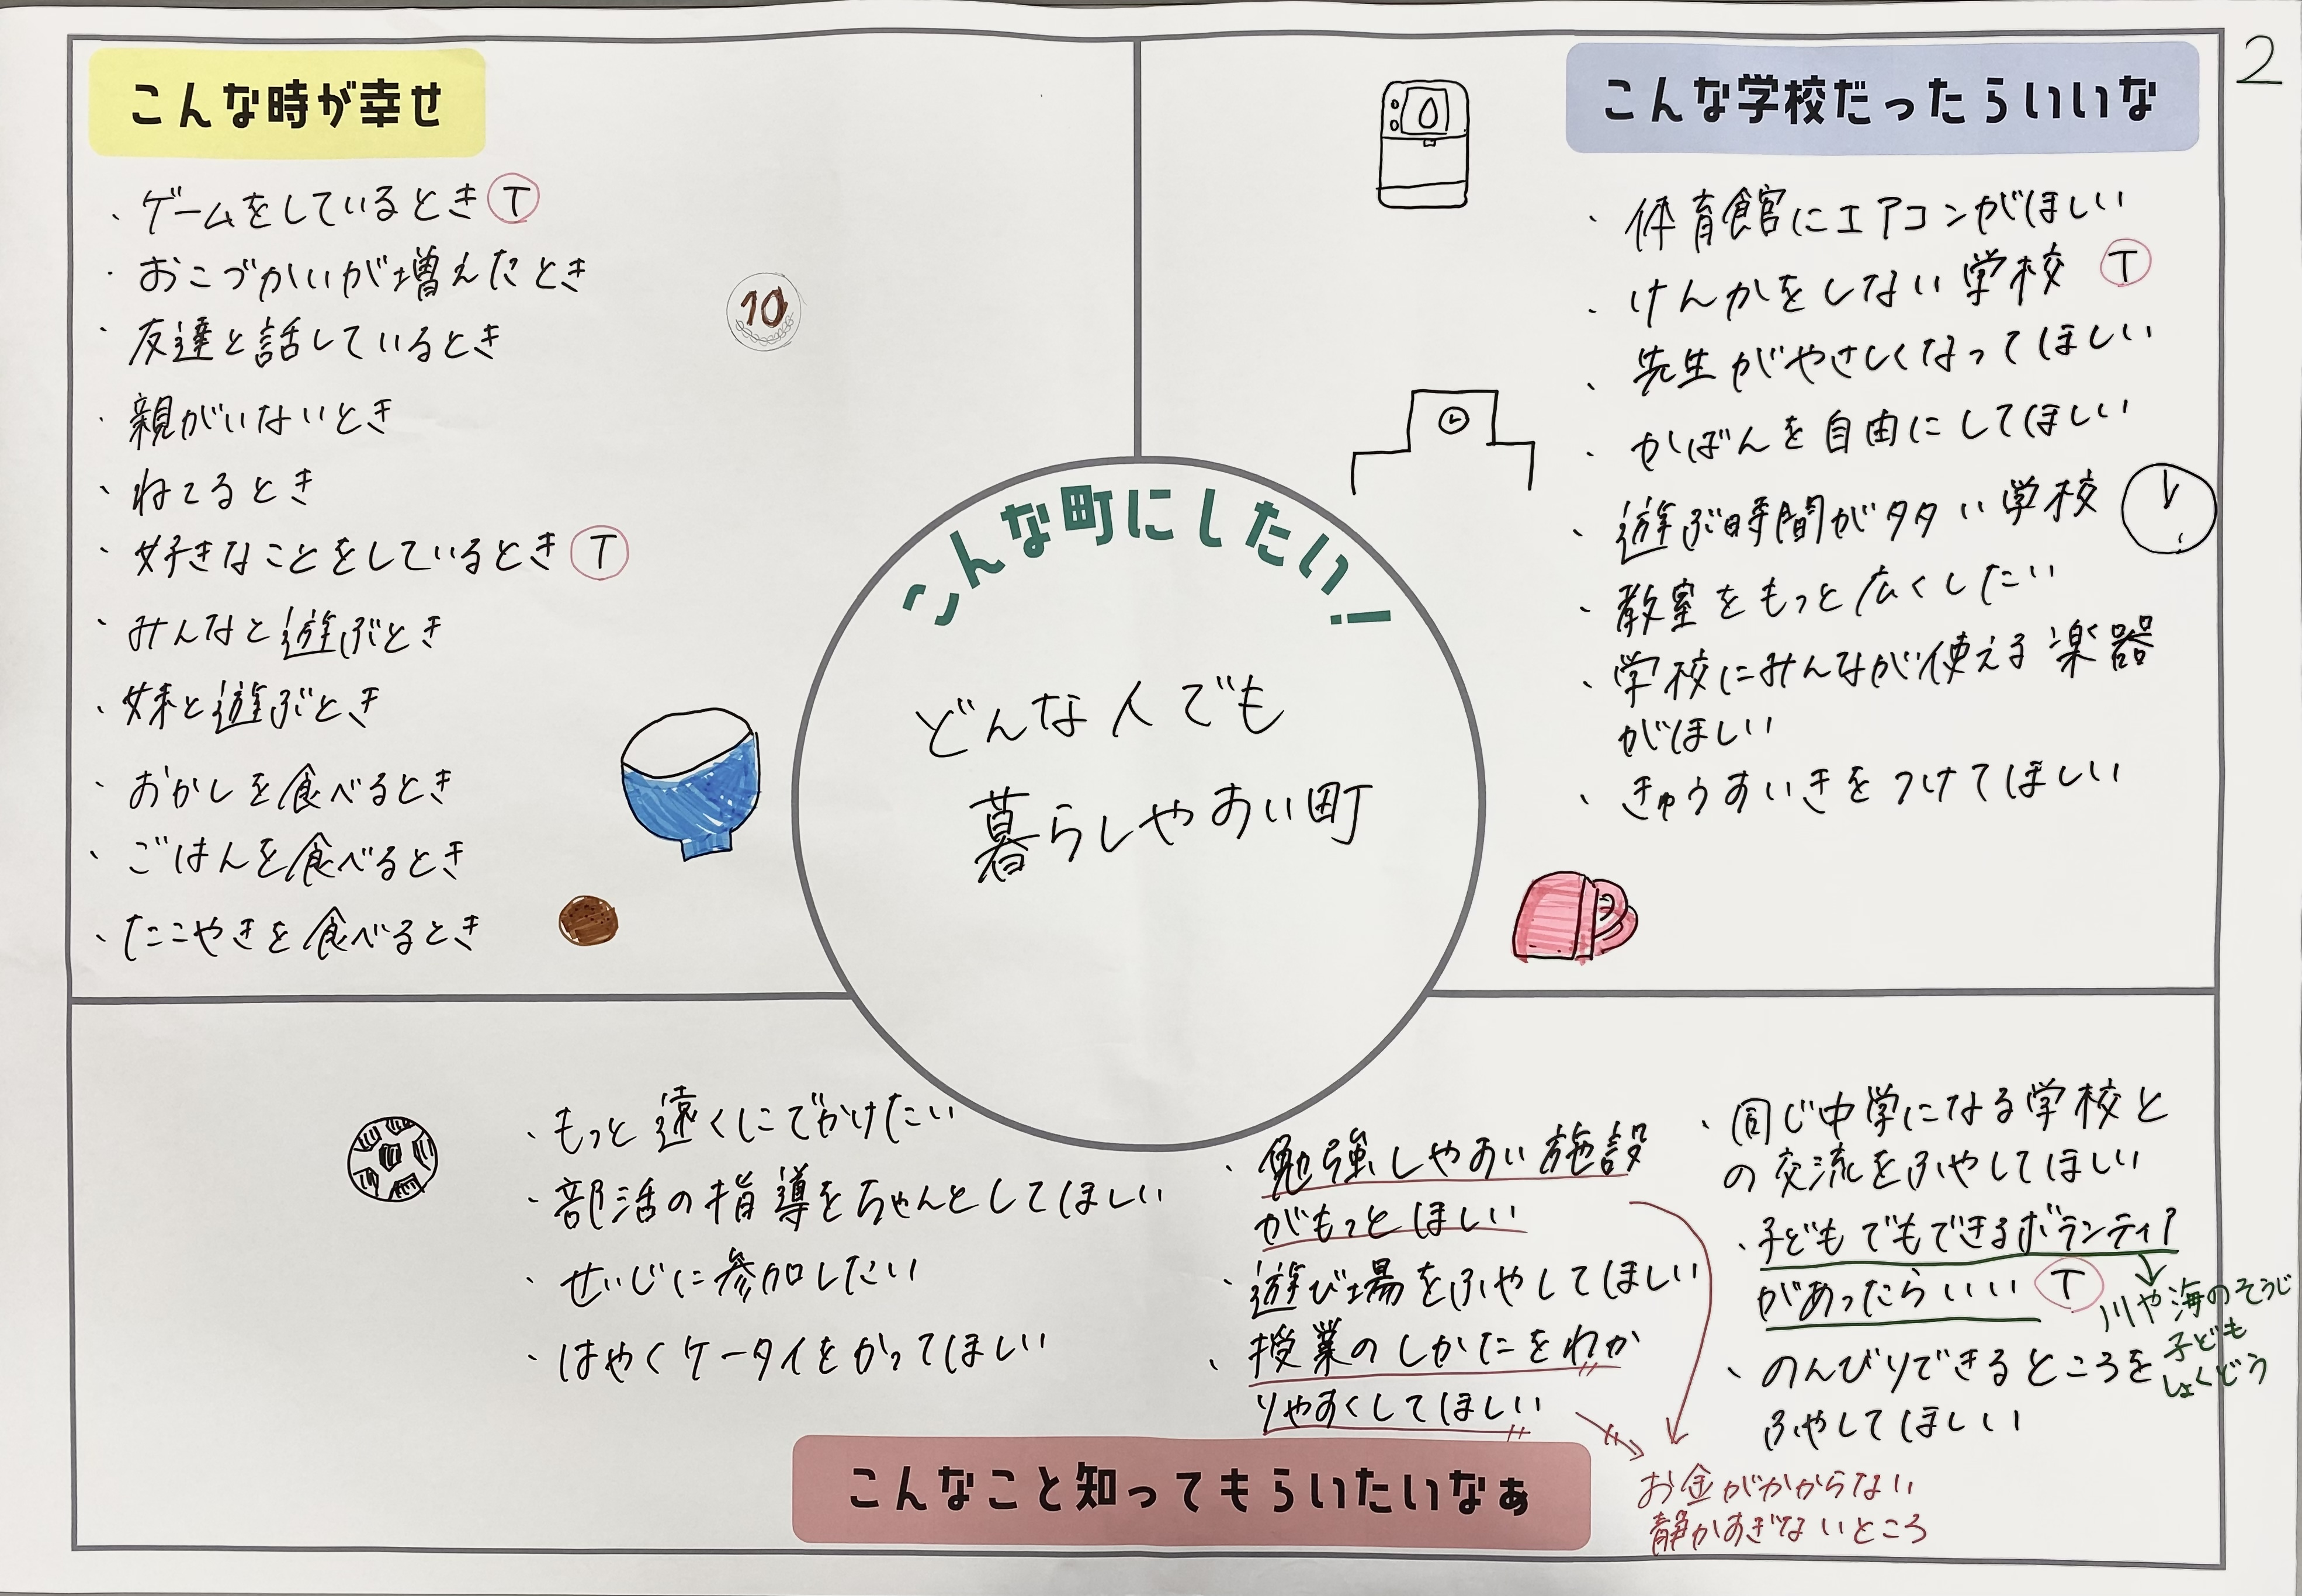 2
こんな時が幸せ
・ゲームをしているとき Ⓣ
・おこづかいが増えたとき
・友達と話しているとき
・親がいないとき
・ねてるとき
・好きなことをしているとき Ⓣ
・みんなと遊ぶとき
・妹と遊ぶとき
・おかしを食べるとき
・ごはんを食べるとき
・たこやきを食べるとき
10
こんな学校だったらいいな
・体育館にエアコンがほしい
・けんかをしない学校 Ⓣ
・先生がやさしくなってほしい
・かばんを自由にしてほしい
・遊ぶ時間が多い学校
・教室をもっと広くしたい
・学校にみんなが使える楽器
がほしい
・きゅうすいきをつけてほしい
こんな町にしたい!
どんな人でも
暮らしやすい町
・もっと遠くにでかけたい
・部活の指導をちゃんとしてほしい
・せいじに参加したい
・はやくケータイをかってほしい
・勉強しやすい施設
がもっとほしい
・遊び場をふやしてほしい
・授業のしかたをわか
りやすくしてほしい
お金がかからない
静かすぎないところ
・同じ中学になる学校と
の交流をふやしてほしい
・子どもでもできるボランティア
があったらいい Ⓣ
川や海のそうじ
子ども
しょくどう
・のんびりできるところを
ふやしてほしい
こんなこと知ってもらいたいなぁ